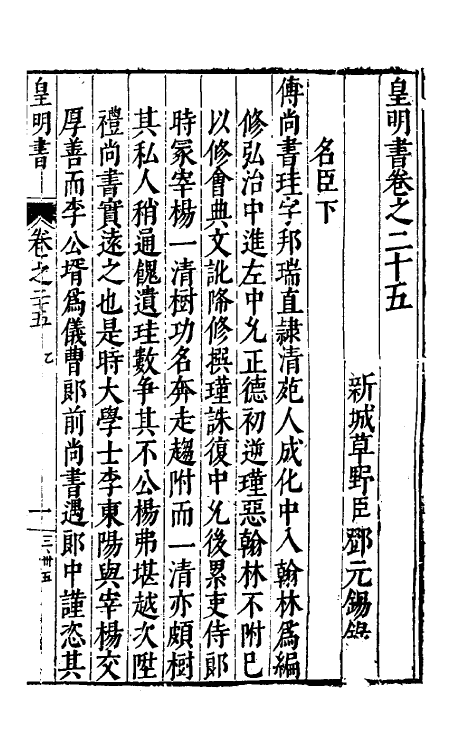 皇明書卷之二十五
新城草野臣鄧元錫錄
名臣下
傅尚書珪字邦瑞直隷清苑人成化中入翰林爲編
修弘治中進左中允正德初逆瑾惡翰林不附已
以修會典文訛降修撰瑾誅復中允後累吏侍郎
時冢宰楊一清樹功名奔走趨附而一清亦頗樹
其私人稍通餽遺珪數爭其不公楊弗堪越次陞
禮尚書實遠之也是時大學士李東陽與宰楊交
厚善而李公壻爲儀曹郎前尚書遇郎中謹恣其
皇明書
卷之二十五
一
三卅五